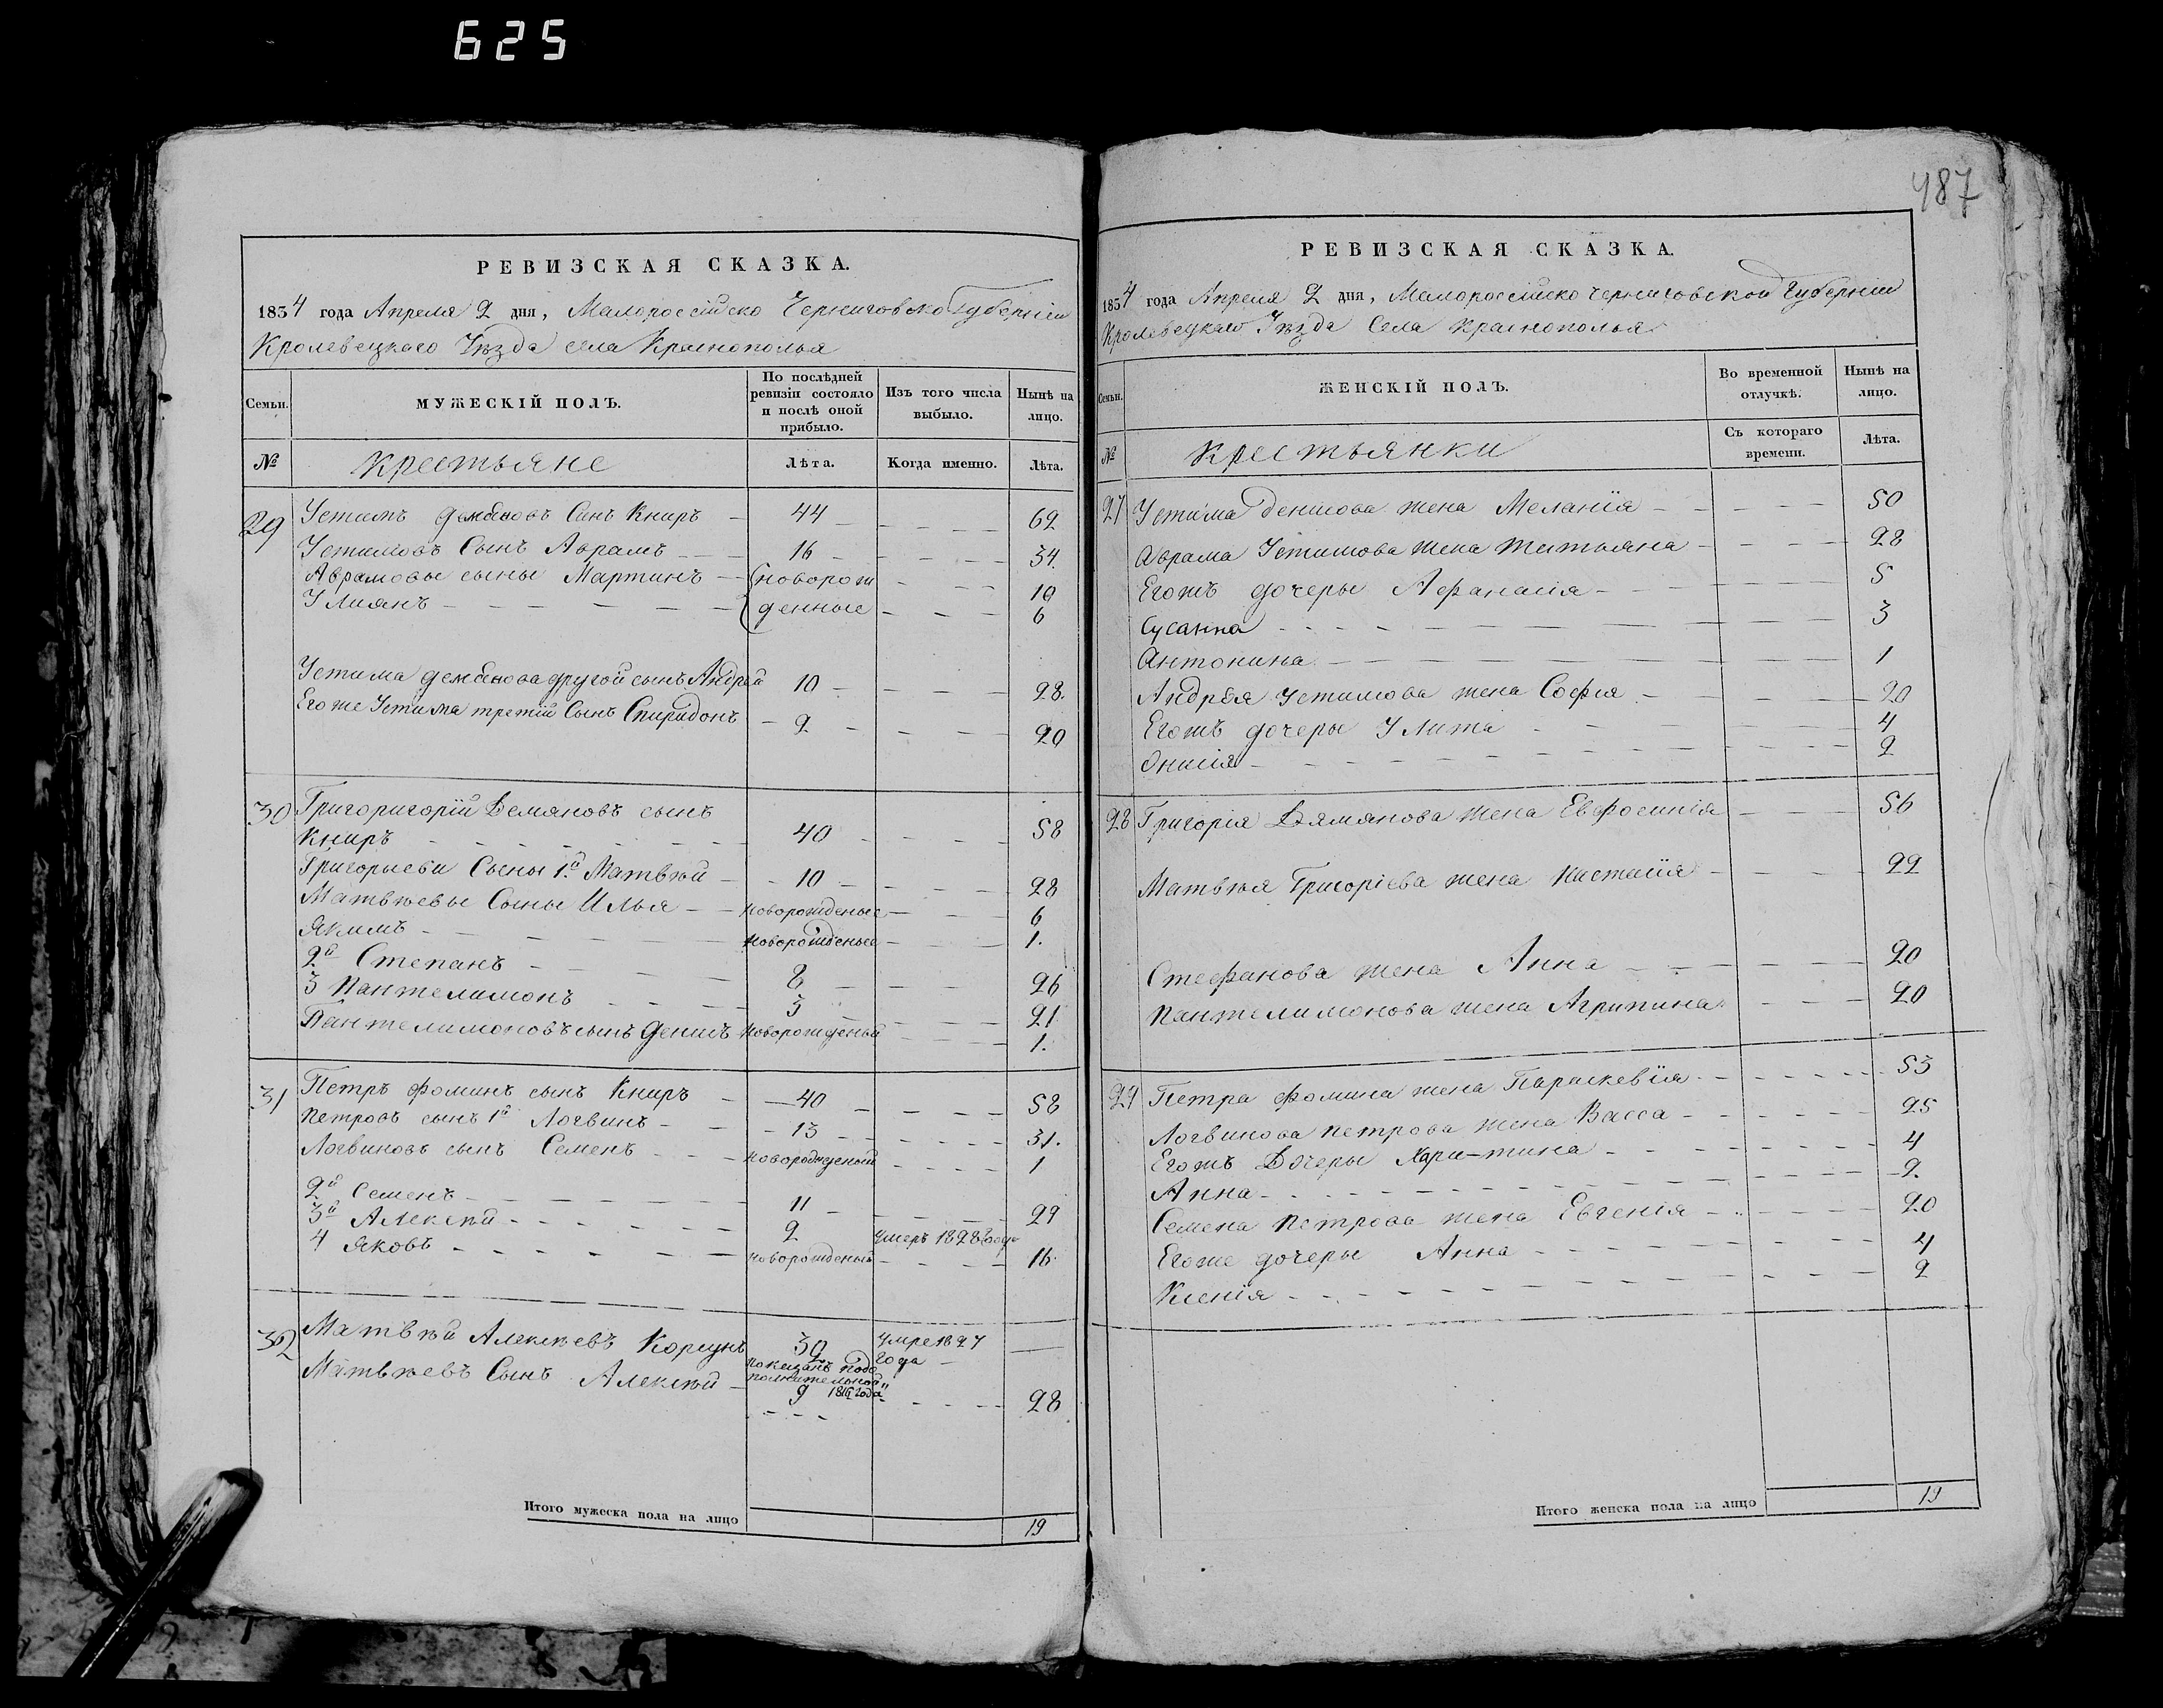 625
487
РЕВИЗСКАЯ СКАЗКА.
1834 года Апреля 2 дня, Малороссійско Черниговско Губерніи
Кролевецкаго Уѣзда села Краснополья
Семьи.
МУЖЕСКІЙ ПОЛЪ.
По послѣдней ревизіи состояло и послѣ оной прибыло.
Изъ того числа выбыло.
Нынѣ на лицо.
№ Крестьяне Лѣта. Когда именно. Лѣта.
29 Устимъ Сынъ Книръ 44 62
Устимовъ Сынъ Аврамъ 16 34.
Аврамовы сыны Мартинъ новорож 10
Улиянъ денные 6
Устима другой сынъ Андрей 10 28.
Его же Устима третій Сынъ Спиридонъ 2 20
30 Григоригорій Демяновъ сынъ
Книръ 40 58
Григорьеви Сыны 1й Матвѣй 10 28
Матвѣевы Сыны Илья новорожденые 6
Якимъ новорожденые 1.
2й Степанъ 8 26
3 Пантелимонъ 3 21
Пантелимоновъ сынъ Денисъ новорожденый 1.
31 Петръ Фоминъ сынъ Книръ 40 58
Петровъ сынъ 1й Логвинъ 13 31.
Логвиновъ сынъ Семенъ новорожденый 1
2й Семенъ 11 29
3й Алексѣй 2 умеръ 1828 года
4 Яковъ новорожденый 16
32 Матвѣй Алексѣевъ Корсунъ 39 умре 1827
года
Матвѣевъ Сынъ Алексѣй показанъ подо
полнительной
9 1816 года 28
Итого мужеска пола на лицо 19
РЕВИЗСКАЯ СКАЗКА.
1834 года Апреля 2 дня, Малороссійско Черниговской Губерніи
Кролевецкаго Уѣзда Села Краснополья
Семьи.
ЖЕНСКІЙ ПОЛЪ.
Во временной отлучкѣ.
Нынѣ на лицо.
№ Крестьянки Съ котораго времени. Лѣта.
27 Устима Денисова жена Меланія 50
Аврама Устимова жена Татьяна 28
Егожъ дочеры Афанасія 5
Сусанна 3
Антонина 1
Андрея Устимова жена Софія 20
Егожъ дочеры Улита 4
Онисія 2
28 Григорія Дямянова жена Евфросинія 56
Матвѣя Григоріева жена Настасія 22
Стефанова жена Анна 20
Пантелимонова жена Агрипина 20
29 Петра Фомина жена Параскевія 53
Логвинова Петрова жена Васса 25
Егожъ Дочеры Харитина 4
Анна 2.
Семена Петрова жена Евгенія 20
Егоже дочеры Анна 4
Ксенія 2
Итого женска пола на лицо 19